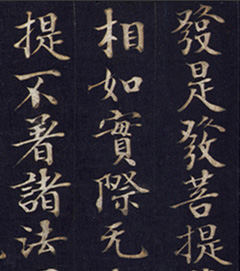 發是發菩提
相如實際无
提不著諸法